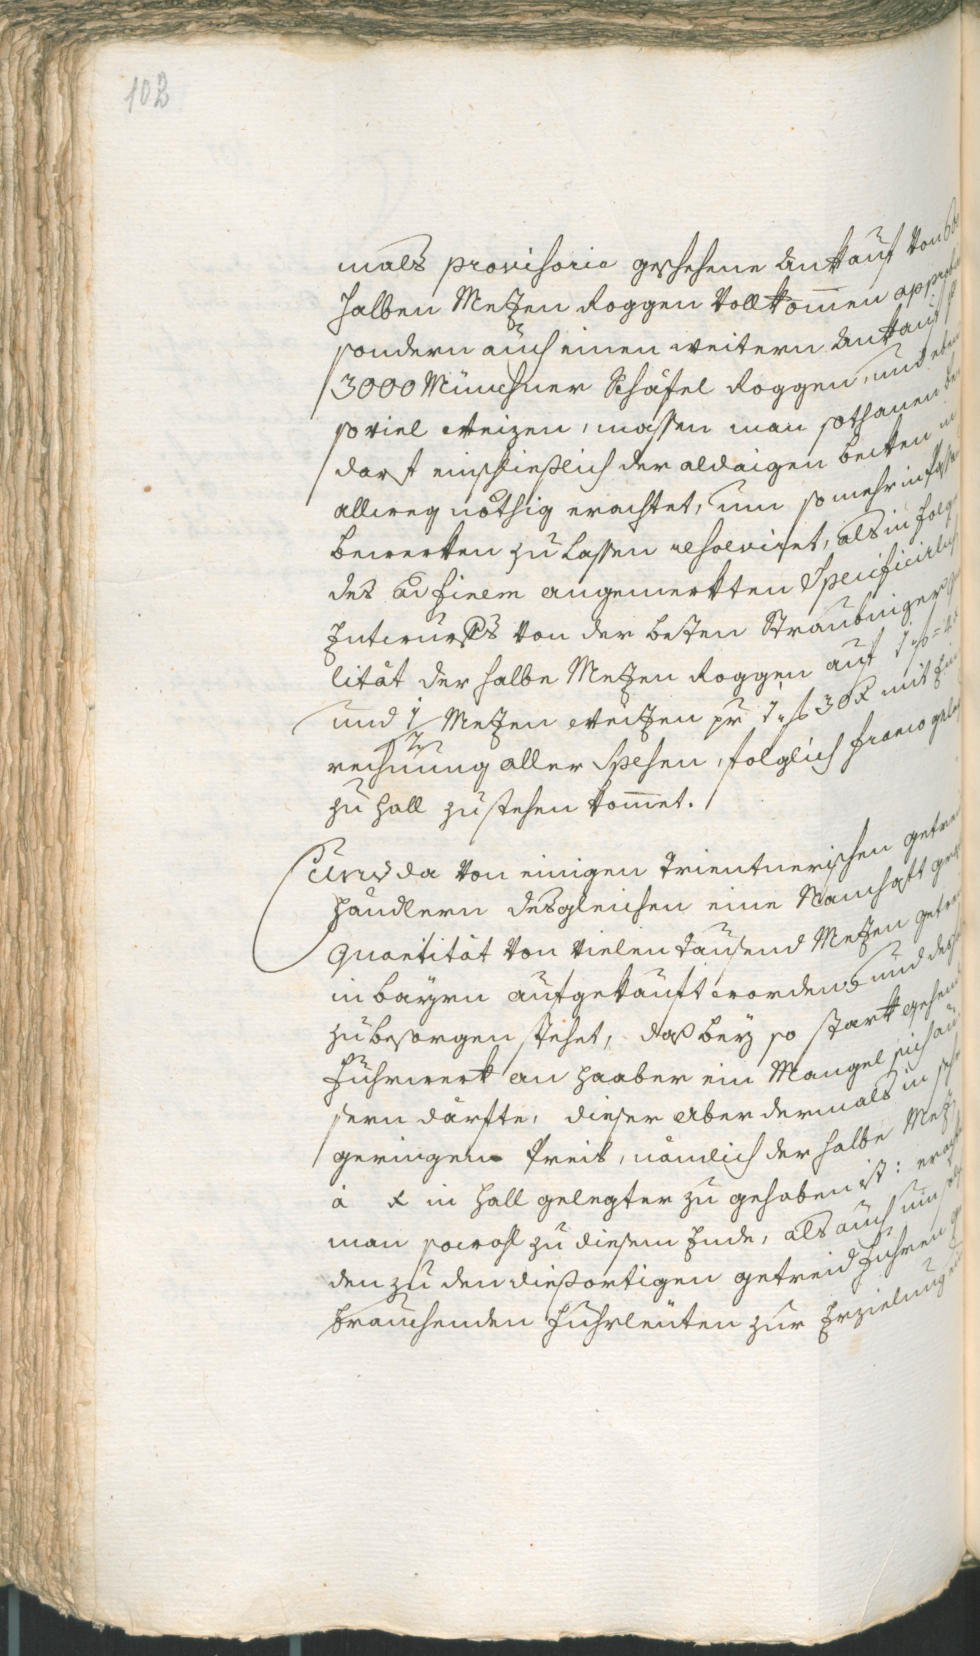 102
mals provisorie geschehene Ankauf von
halben Mezen Roggen vollkom̄en
sondern auch einen weitern Ankauf
3000 Münchner Schäfel Roggen, und eben
so viel Weizen, massen man sothanen be
darf einschließlich der aldaigen becken
allweg nöthig erachtet, um so mehr
bewerken zu lassen resolviret, als in folge
des ad finem angemerkten Specificirlich
von der besten Straubinger Qua
lität der halbe Mezen Roggen auf 1 f
und 1/2 Mezen Weitzen pr 1 f 30 x mit Ein
rechnung aller Spesen, folglich franco
zu Hall zustehen kom̄et.
Und da von einigen Trientnerischen getrei
händlern desgleichen eine Namhaft
Quantität von vielen tausend Mezen
in bayrn aufgekauft worden, und
zubesorgen stehet, daß bey so stark gehend
fuhrwerk an Haaber ein Mangel sich
sern därfte, dieser aber dermals in sehr
geringem Preis, nämlich der halbe Mez
à x in Hall gelegter zu gehaben ist:
man sowohl zu diesem Ende, als auch um
den zu den dießortigen getreid Fuhren
brauchenden Fuhrleuten zur Erzielung